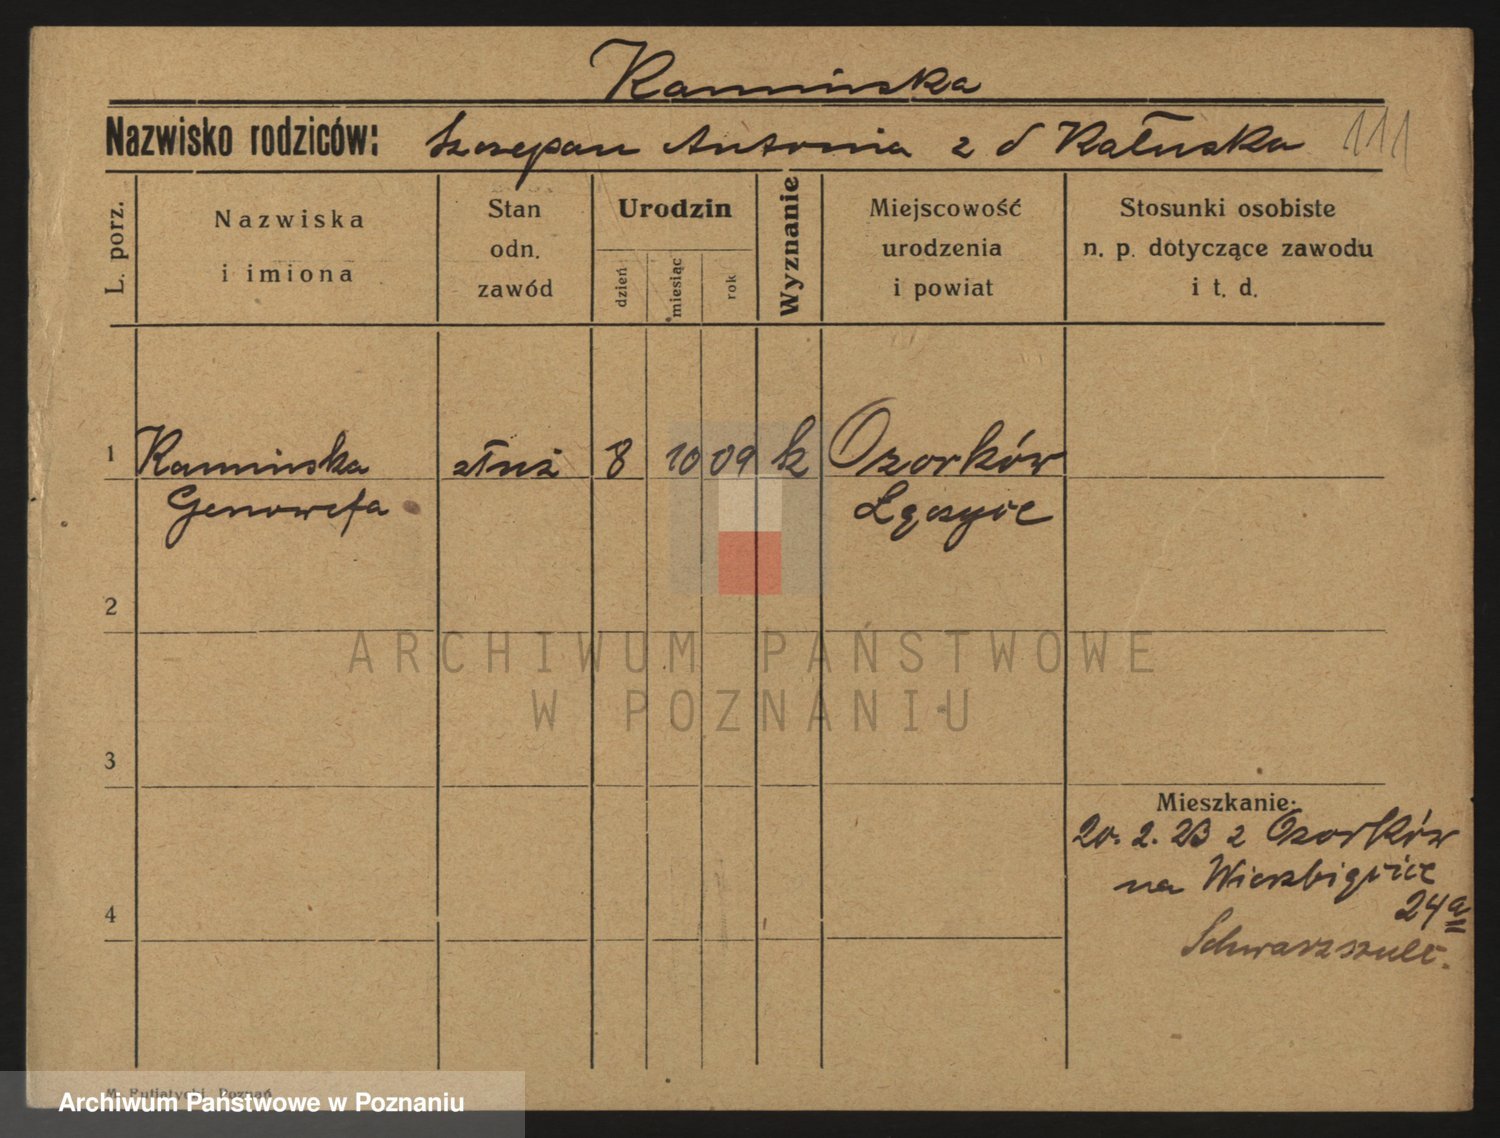 Kaminska
Nazwisko rodziców: Szczepan Antonia z d Kałuska 111
L. porz.
Nazwiska
i imiona
Stan
odn.
zawód
Urodzin
dzień
miesiąc
rok
Wyznanie
Miejscowość
urodzenia
i powiat
Stosunki osobiste
n. p. dotyczące zawodu
i t. d.
1 Kaminska służ 8 10 09 k Ozorków
Genowefa Łęczyce
2
ARCHIWUM PAŃSTWOWE
W POZNANIU
3
Mieszkanie:
20. 2. 23 z Ozorków
na Wierzbięcice
4
24a
M. Putiatycki, Poznań
Archiwum Państwowe w Poznaniu